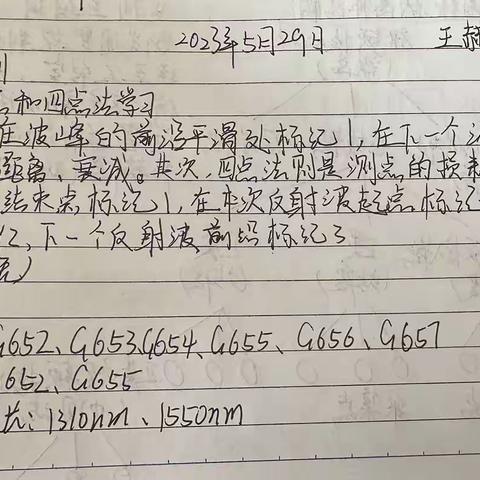 2023年5月29日 王赫
和四点法学习
在波峰的前沿平滑处标记1,在下一个
距离、衰减。其次,四点法则是测点的损耗
结束点标记1,在本次反射波起点标记
2,下一个反射波前沿标记3
G652、G653、G654、G655、G656、G657
652、G655
长:1310nm、1550nm